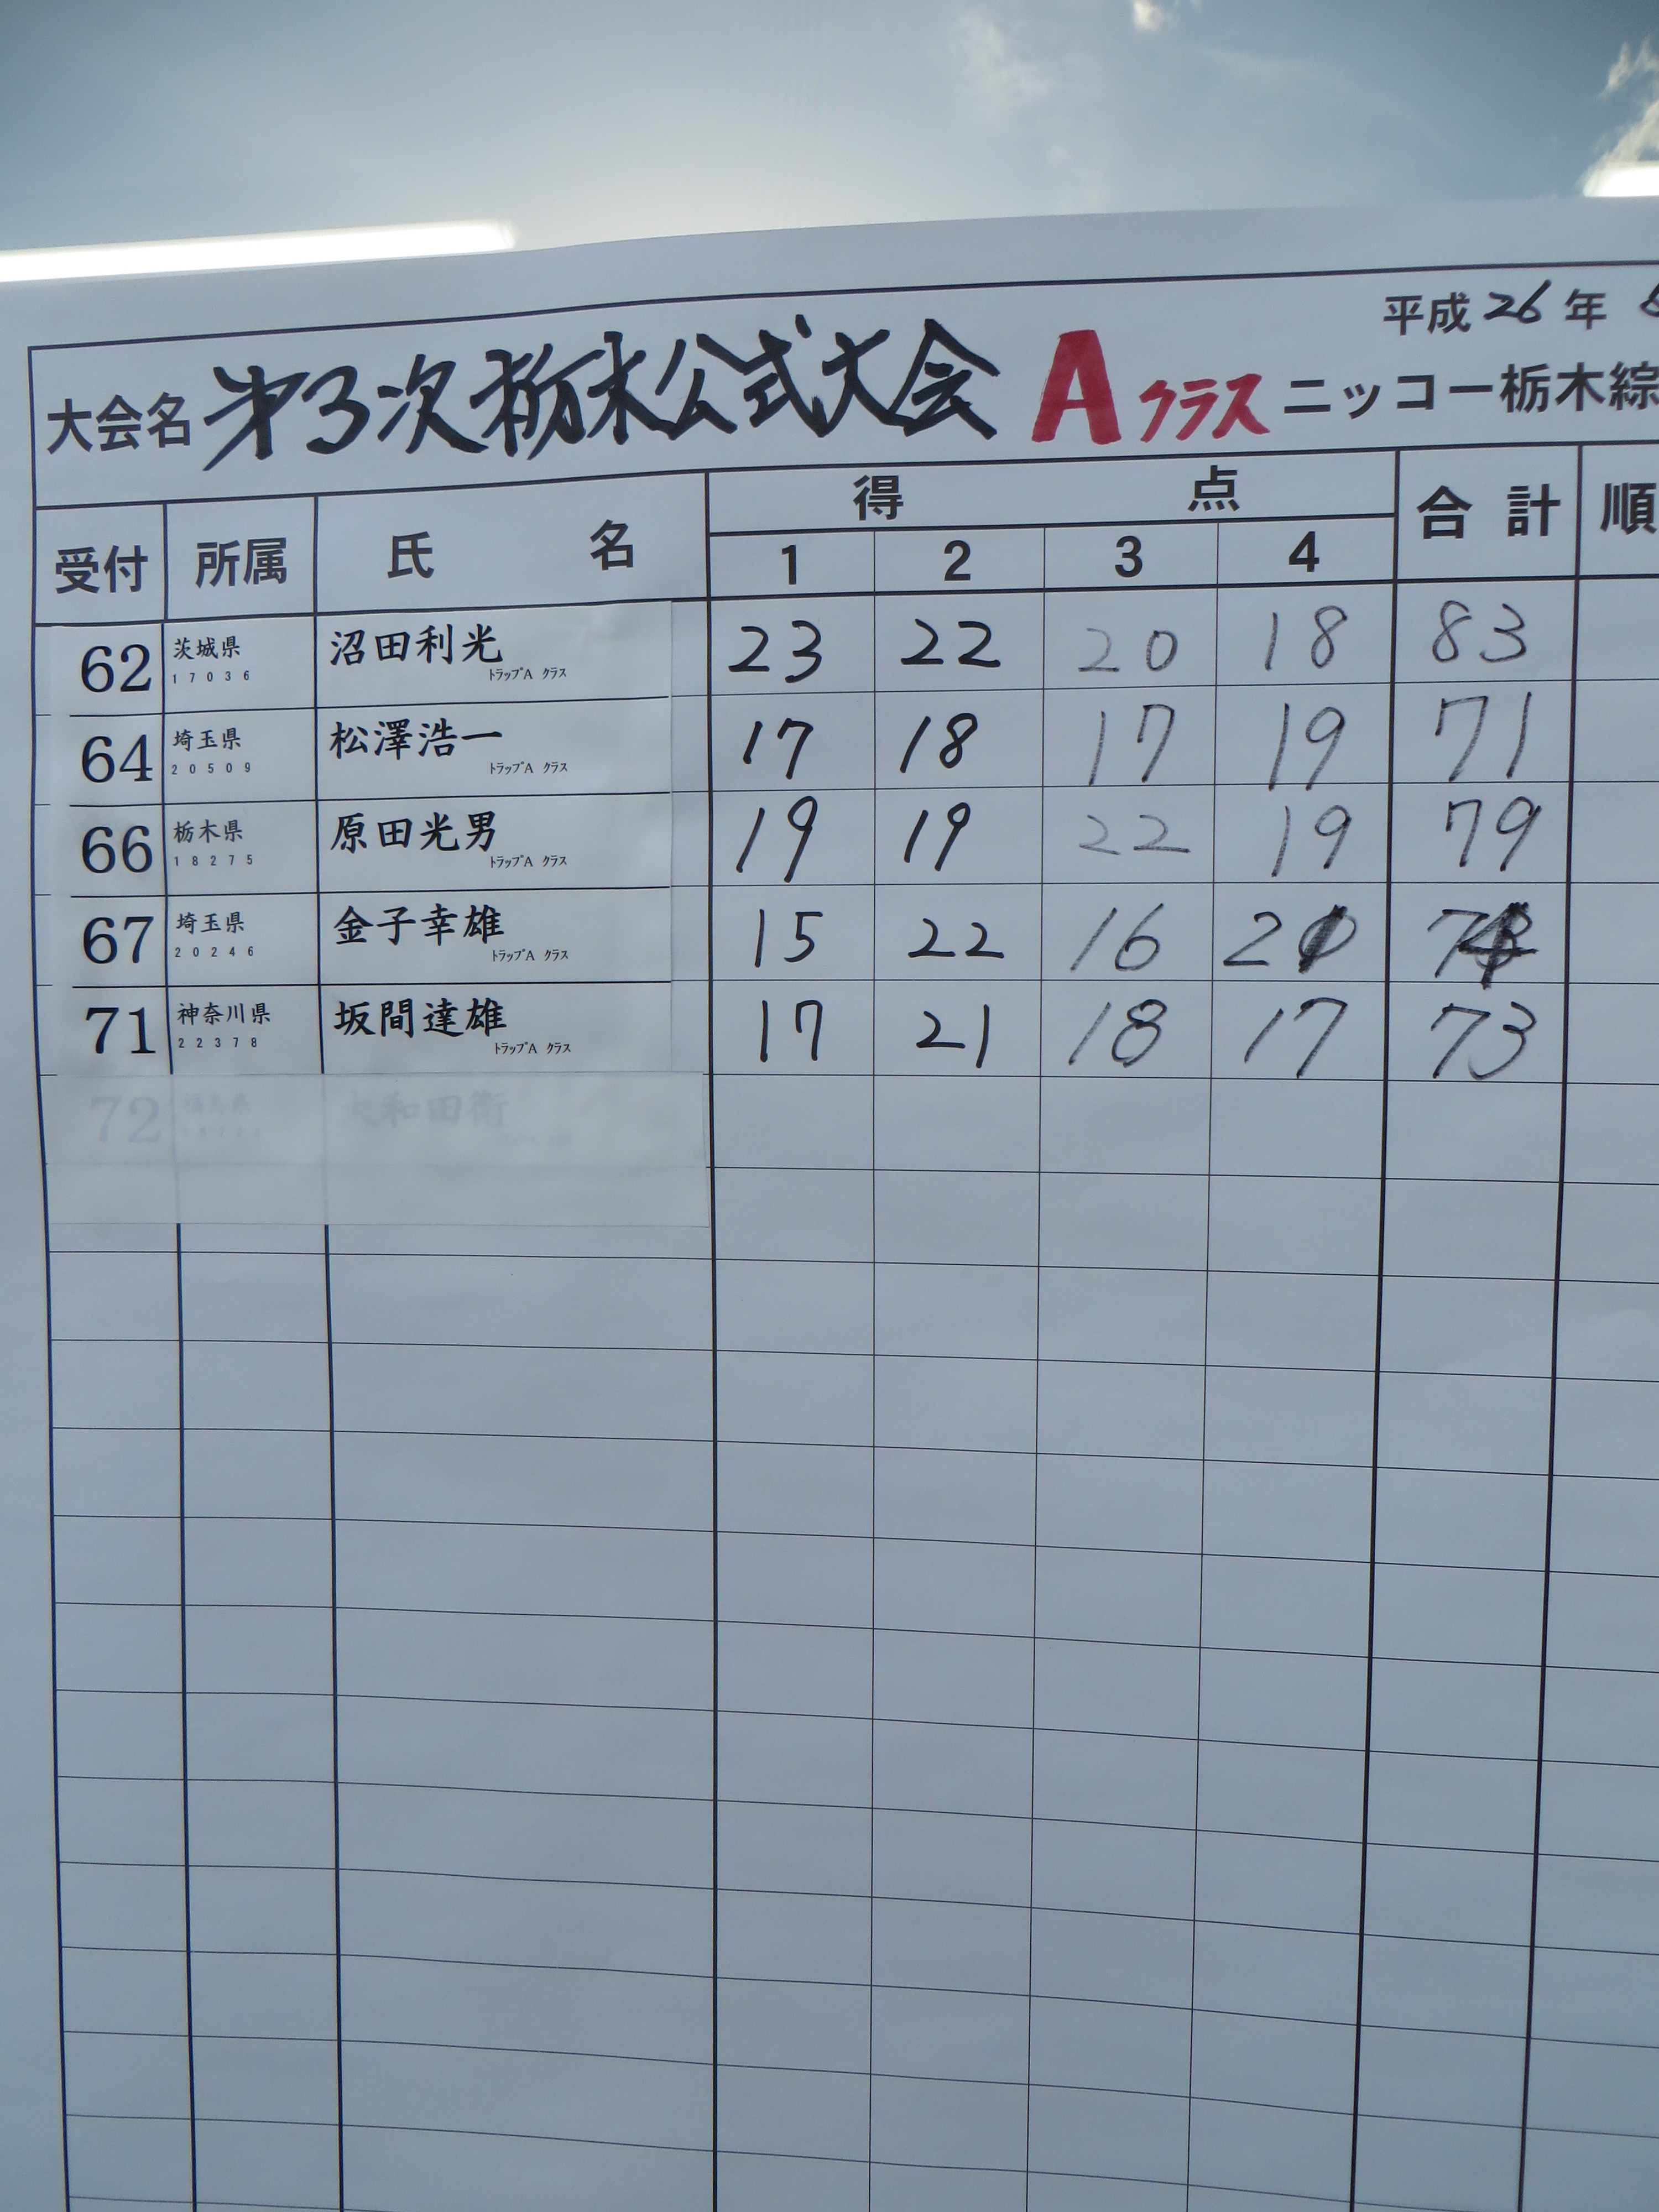 平成26年
大会名 第3次栃木公式大会 Aクラス ニッコー栃木綜
受付 所属 氏名 得点 合計 順
1 2 3 4
62 茨城県 沼田利光 23 22 20 18 83
17036 トラップA クラス
64 埼玉県 松澤浩一 17 18 17 19 71
20509 トラップA クラス
66 栃木県 原田光男 19 19 22 19 79
18275 トラップA クラス
67 埼玉県 金子幸雄 15 22 16 21 74
20246 トラップA クラス
71 神奈川県 坂間達雄 17 21 18 17 73
22378 トラップA クラス
72 福島県 大和田衛